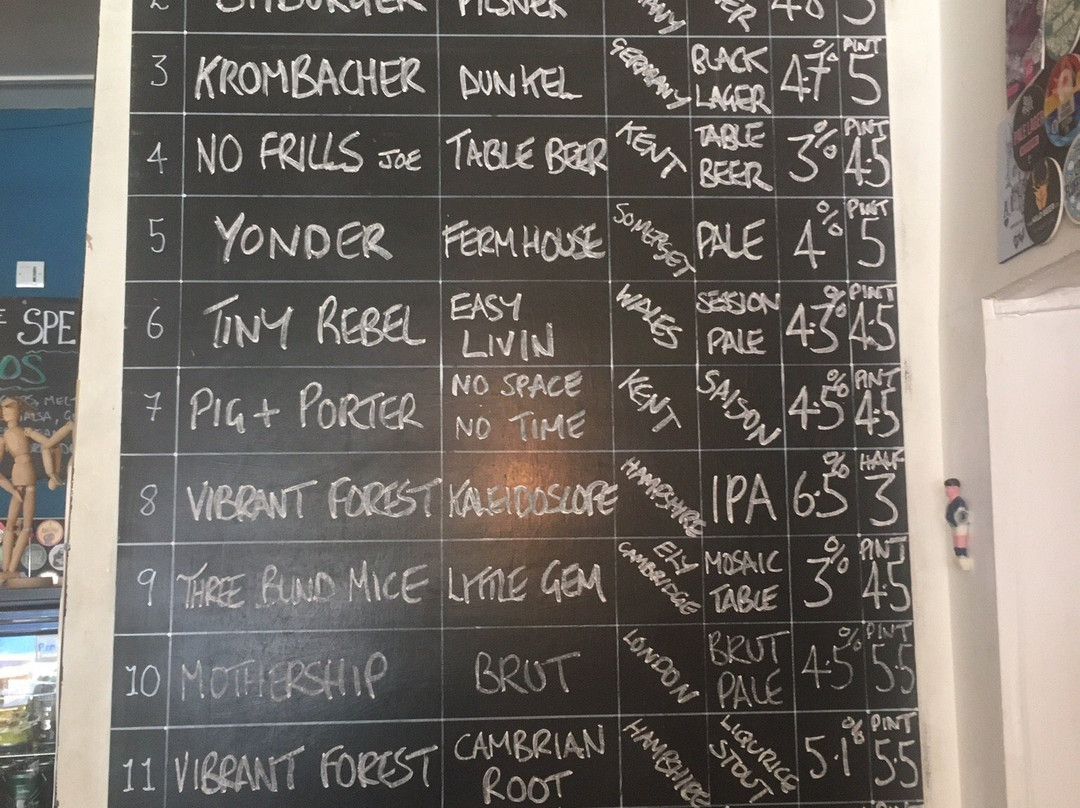 2 BITBURGER PILSNER GERMANY 4.8 5
3 KROMBACHER DUNKEL GERMANY BLACK LAGER 4.7% PINT 5
4 NO FRILLS JOE TABLE BEER KENT TABLE BEER 3% PINT 4.5
5 YONDER FERMHOUSE SOMERSET PALE 4% PINT 5
6 TINY REBEL EASY LIVIN WALES SESSION PALE 4.3% PINT 4.5
7 PIG + PORTER NO SPACE NO TIME KENT SAISON 4.5% PINT 4.5
8 VIBRANT FOREST KALEIDOSCOPE HAMPSHIRE IPA 6.5% HALF 3
9 THREE BLIND MICE LITTLE GEM ELY CAMBRIDGE MOSAIC TABLE 3% PINT 4.5
10 MOTHERSHIP BRUT LONDON BRUT PALE 4.5% PINT 5.5
11 VIBRANT FOREST CAMBRIAN ROOT HAMPSHIRE LIQURICE STOUT 5.1% PINT 5.5
PINT
SPE
OS